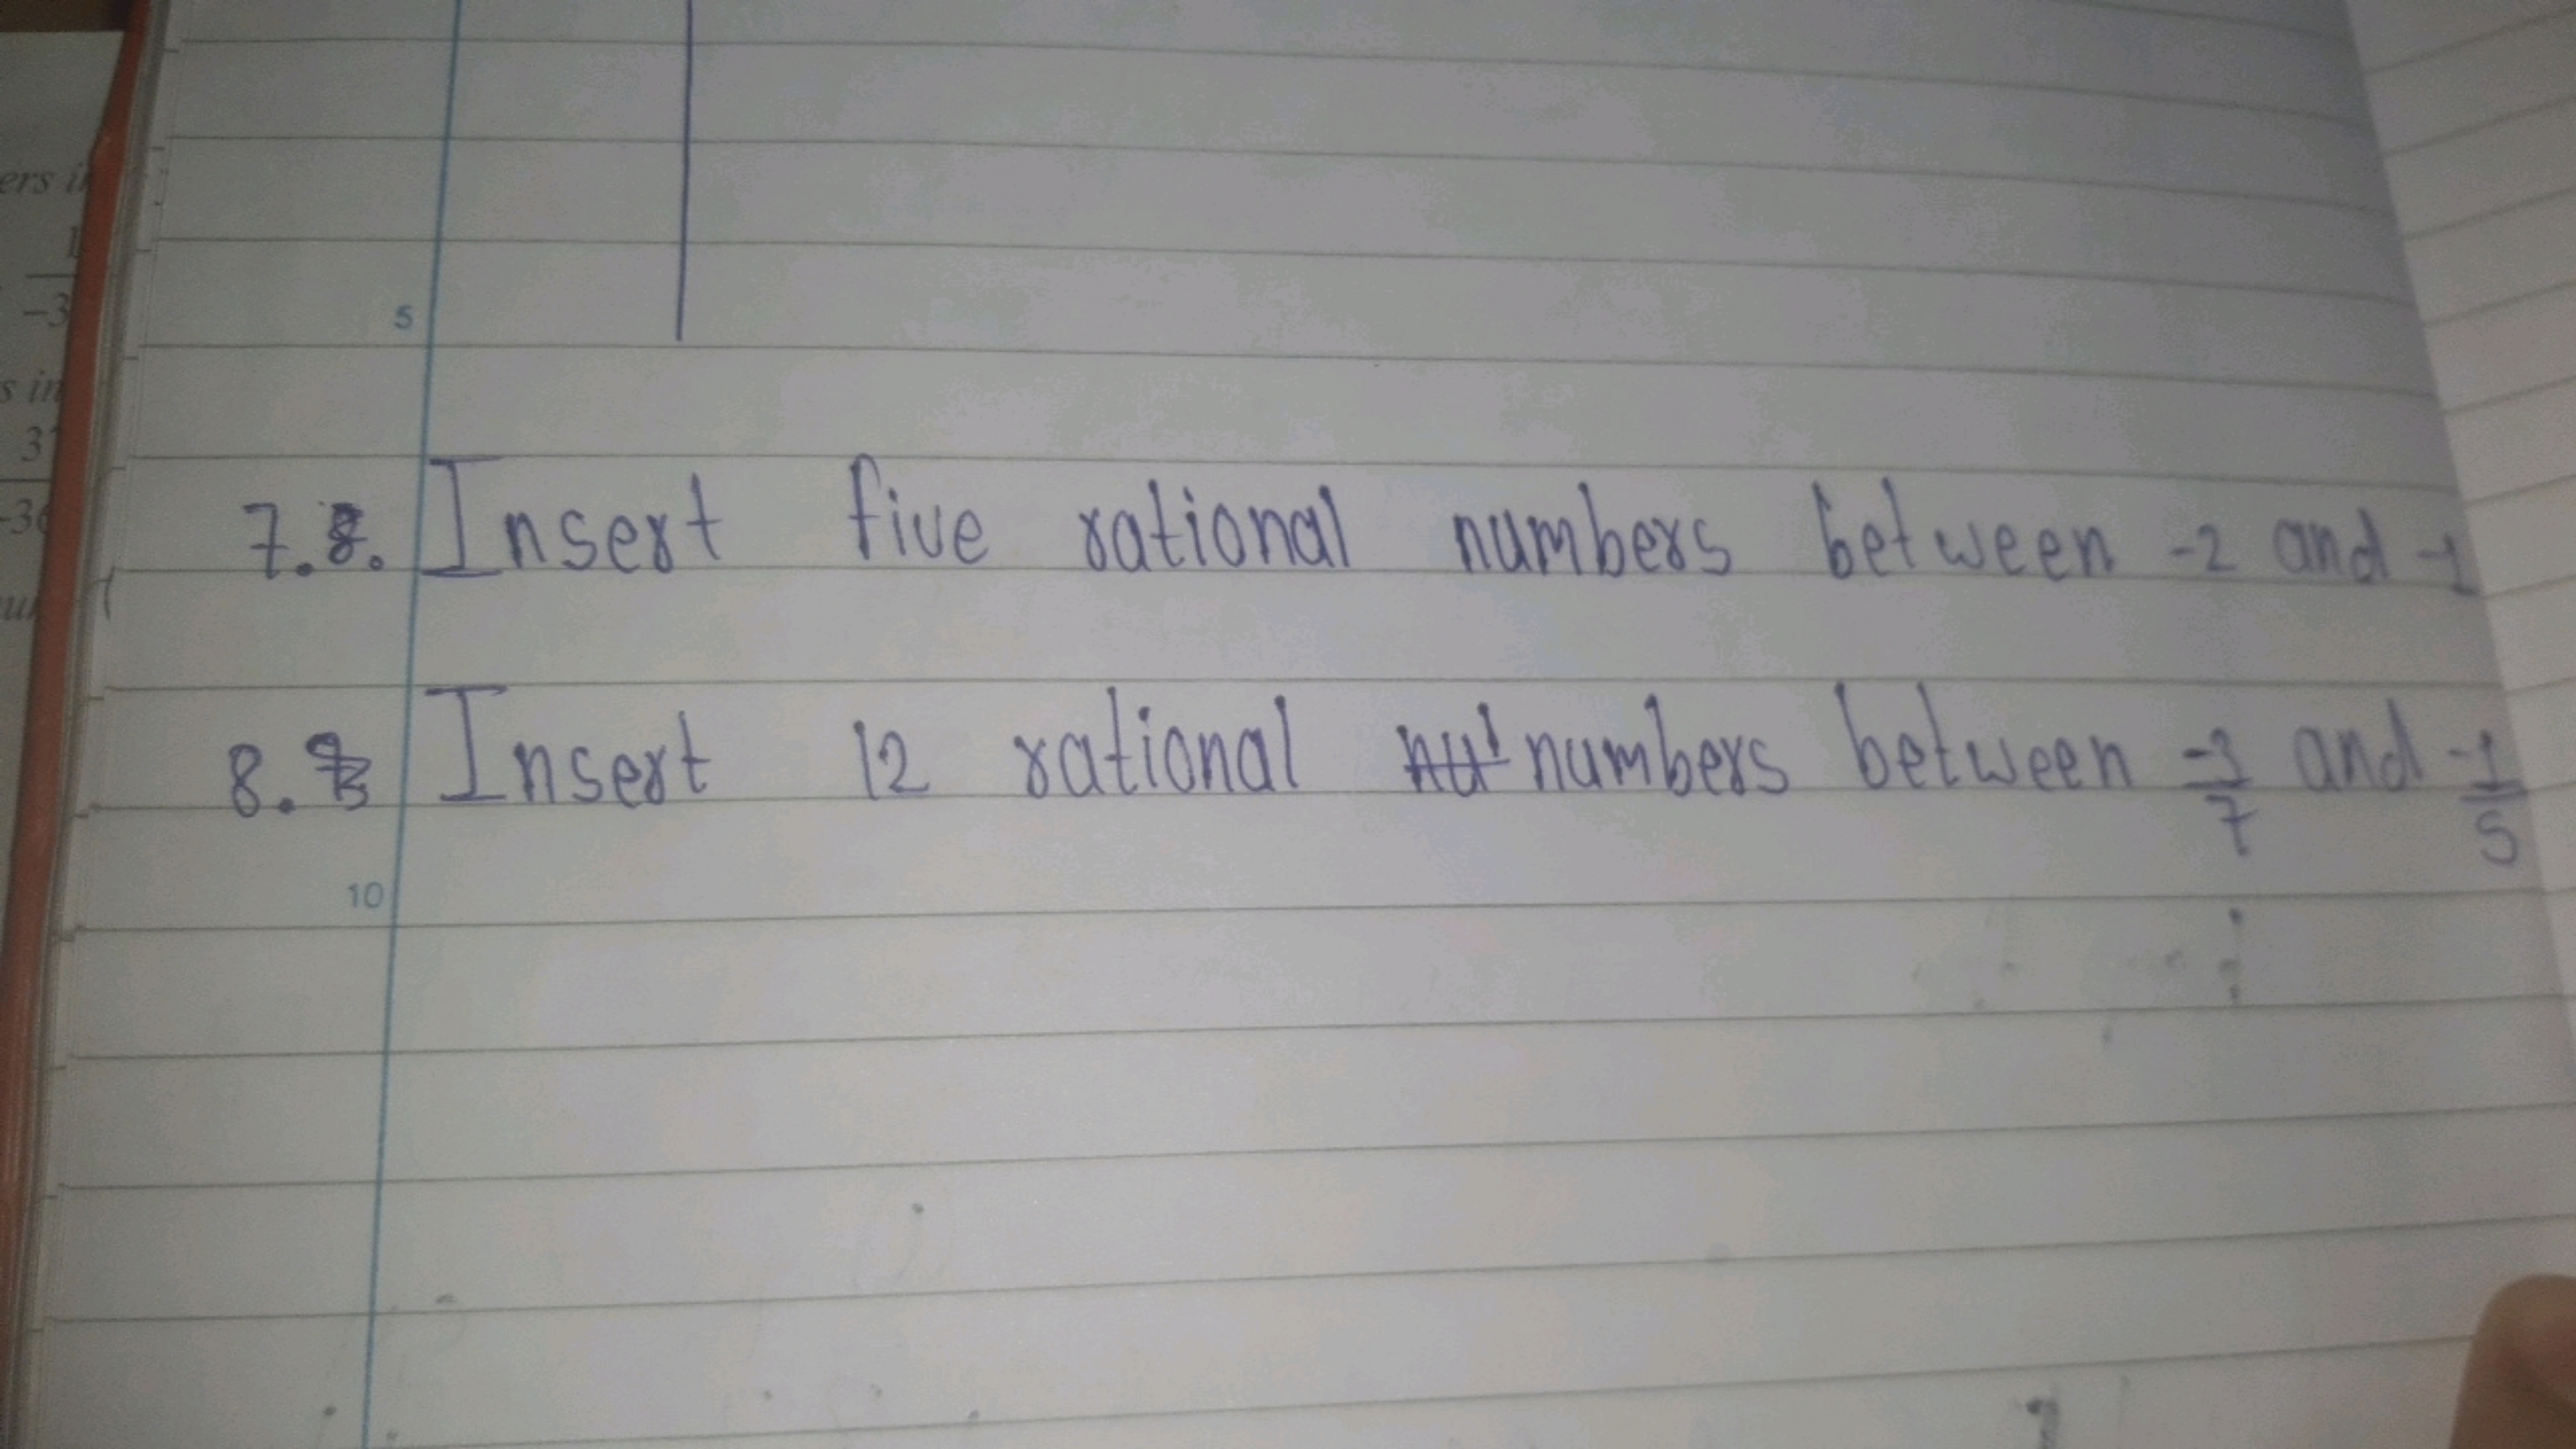 ers i
1
-3
5
s in
3
-3
7. 8. Insert five rational numbers between -2 and -1
8. Insert 12 rational numbers between -3/7 and -1/5
10